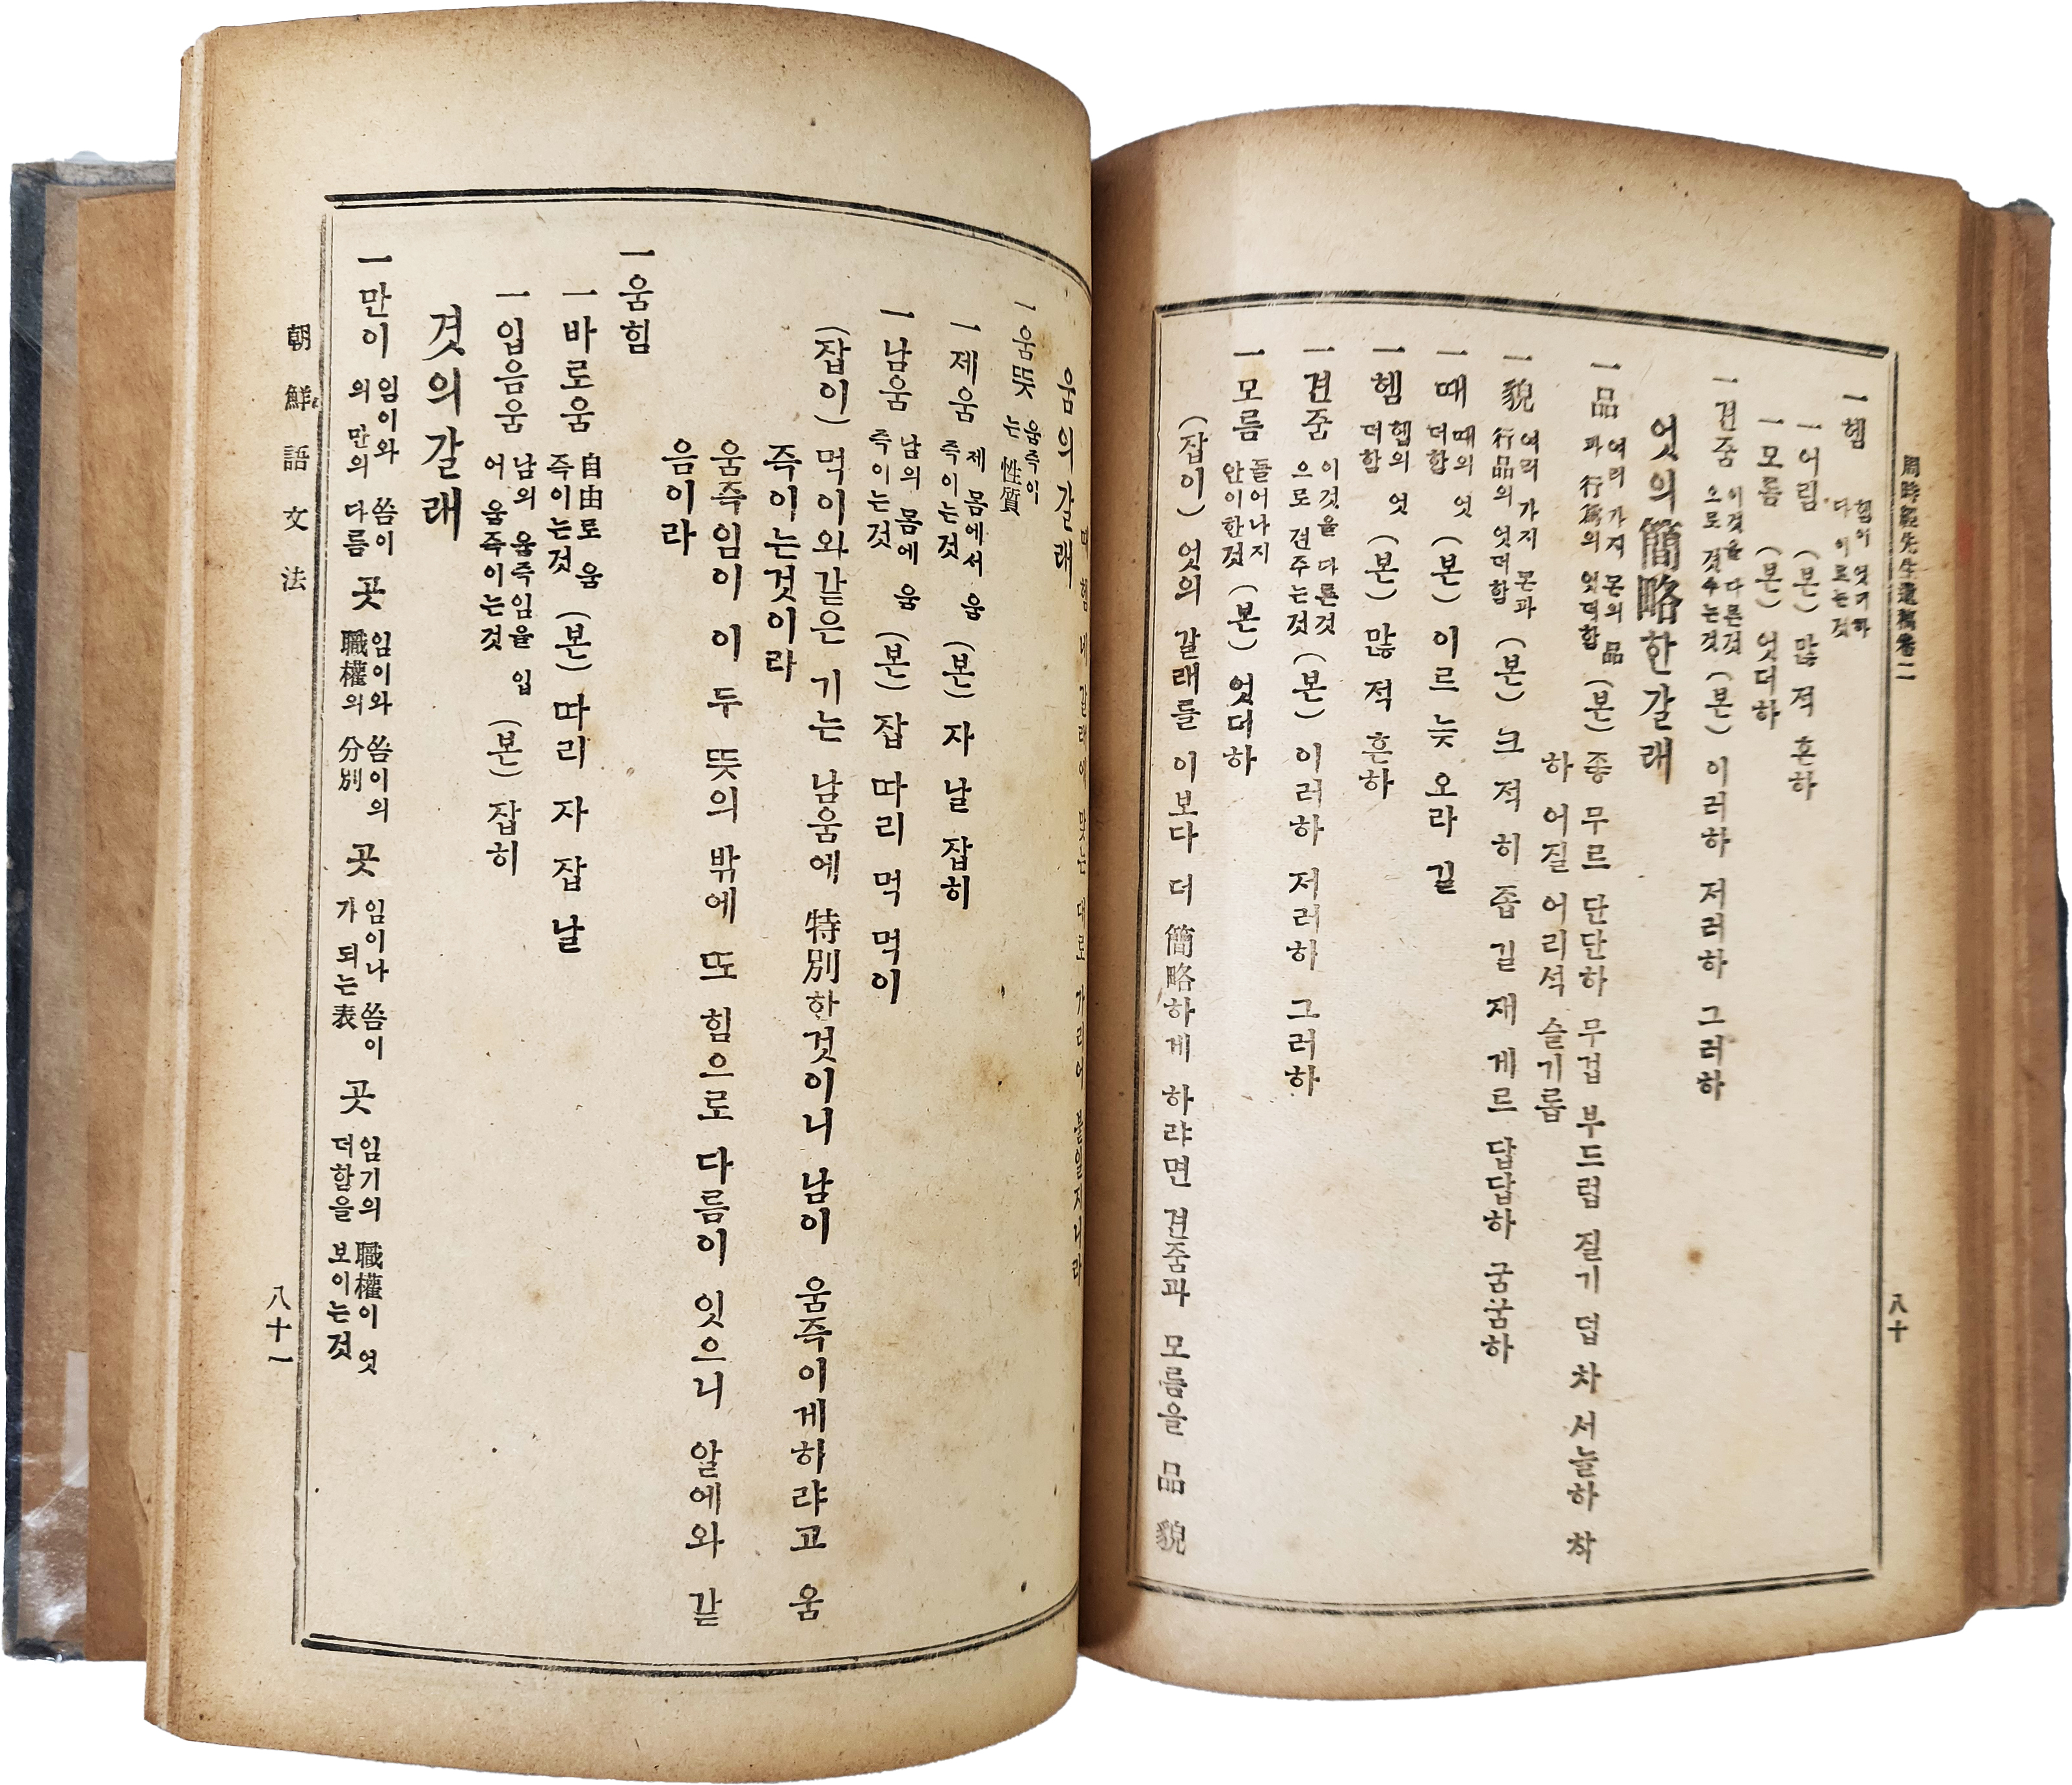 周時經先生遺稿卷二
一헴 헴이 엇더하
다 이르는것
一어림 (본) 많 적 흔하
一모름 (본) 엇더하
一견줌 이것을 다른것
으로 견주는것 (본) 이러하 저러하 그러하
엇의簡略한갈래
一品 여러 가지 몬의 品
과 行爲의 엇더함 (본) 좋 무르 단단하 무겁 부드럽 질기 덥 차 서늘하 착
하 어질 어리석 슬기롭
一貌 여러 가지 몬과
行品의 엇더함 (본) 크 적 히 좁 길 재 게르 답답하 굼굼하
一때 때의 엇
더함 (본) 이르 늦 오라 길
一헴 헴의 엇
더함 (본) 많 적 흔하
一견줌 이것을 다른것
으로 견주는것 (본) 이러하 저러하 그러하
一모름 들어나지
안이한것 (본) 엇더하
(잡이) 엇의 갈래를 이보다 더 簡略하게 하랴면 견줌과 모름을 品 貌
八十
움의갈래
一움뜻 움즉이
는 性質
一제움 제 몸에서 움
즉이는것 (본) 자 날 잡히
一남움 남의 몸에 움
즉이는것 (본) 잡 따리 먹 먹이
(잡이) 먹이와같은 기는 남움에 特別한것이니 남이 움즉이게하랴고 움
즉이는것이라
움즉임이 이 두 뜻의 밖에 또 힘으로 다름이 잇으니 알에와 같
음이라
一움힘
一바로움 自由로 움
즉이는것 (본) 따리 자 잡 날
一입음움 남의 움즉임을 입
어 움즉이는것 (본) 잡히
겻의갈래
一만이 임이와 씀이
의 만의 다름 곳 임이와 씀이의
職權의 分別 곳 임이나 씀이
가 되는 表 곳 임기의 職權이 엇
더함을 보이는것
朝鮮語文法
八十一